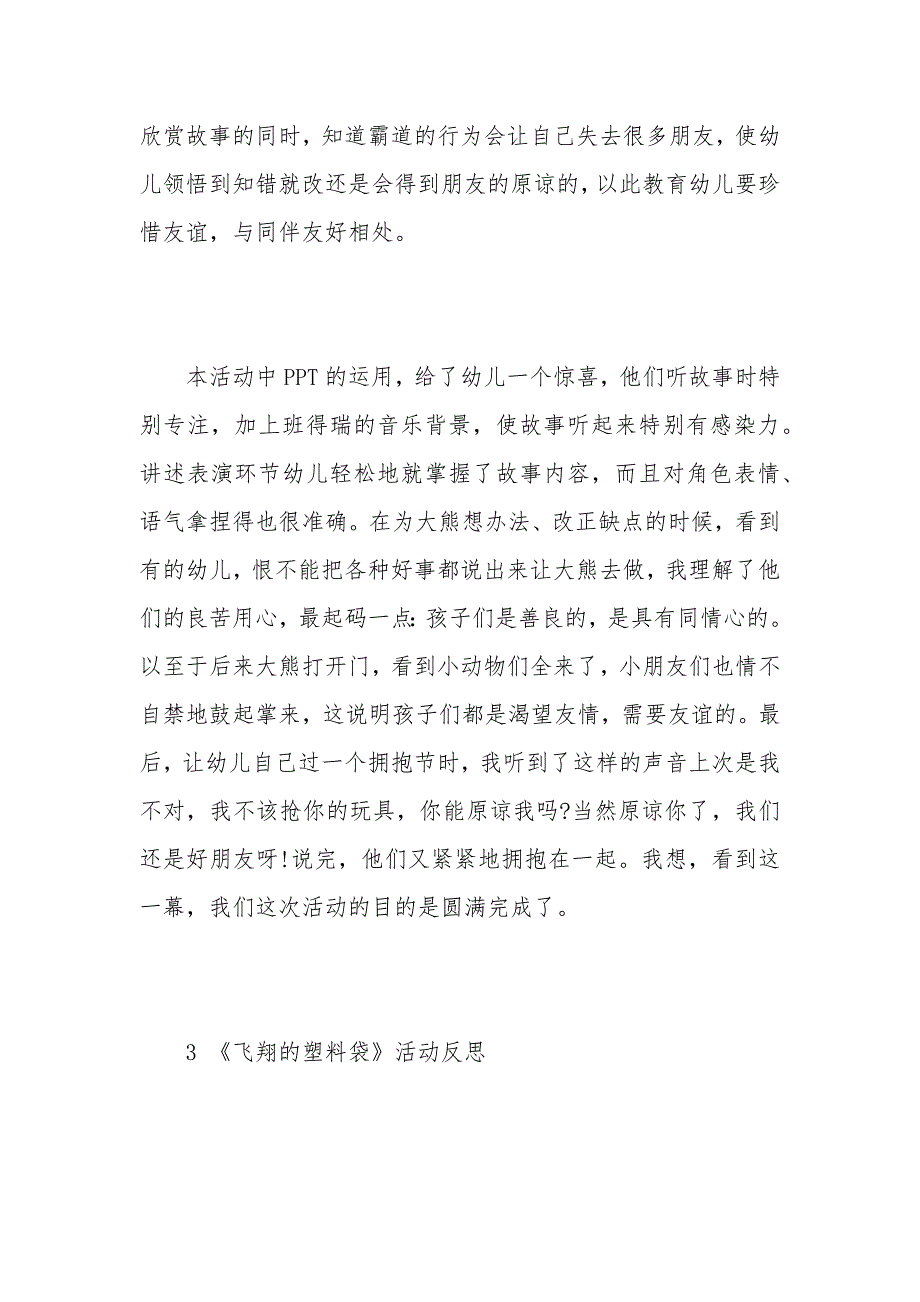 欣赏故事的同时，知道霸道的行为会让自己失去很多朋友，使幼
儿领悟到知错就改还是会得到朋友的原谅的，以此教育幼儿要珍
惜友谊，与同伴友好相处。
本活动中 PPT 的运用，给了幼儿一个惊喜，他们听故事时特
别专注，加上班得瑞的音乐背景，使故事听起来特别有感染力。
讲述表演环节幼儿轻松地就掌握了故事内容，而且对角色表情、
语气拿捏得也很准确。在为大熊想办法、改正缺点的时候，看到
有的幼儿，恨不能把各种好事都说出来让大熊去做，我理解了他
们的良苦用心，最起码一点：孩子们是善良的，是具有同情心的。
以至于后来大熊打开门，看到小动物们全来了，小朋友们也情不
自禁地鼓起掌来，这说明孩子们都是渴望友情，需要友谊的。最
后，让幼儿自己过一个拥抱节时，我听到了这样的声音上次是我
不对，我不该抢你的玩具，你能原谅我吗?当然原谅你了，我们
还是好朋友呀!说完，他们又紧紧地拥抱在一起。我想，看到这
一幕，我们这次活动的目的是圆满完成了。
3 《飞翔的塑料袋》活动反思